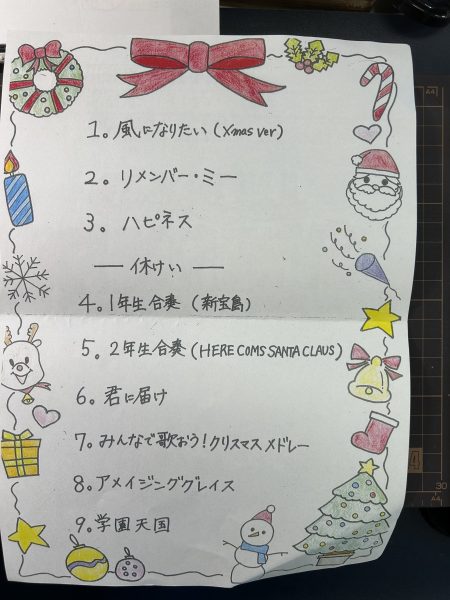 1。風になりたい(Xmas ver)
2。リメンバー・ミー
3。ハピネス
── 休けい ──
4。1年生合奏 (新宝島)
5。2年生合奏(HERE COMS SANTA CLAUS)
6。君に届け
7。みんなで歌おう!クリスマスメドレー
8。アメイジンググレイス
9。学園天国